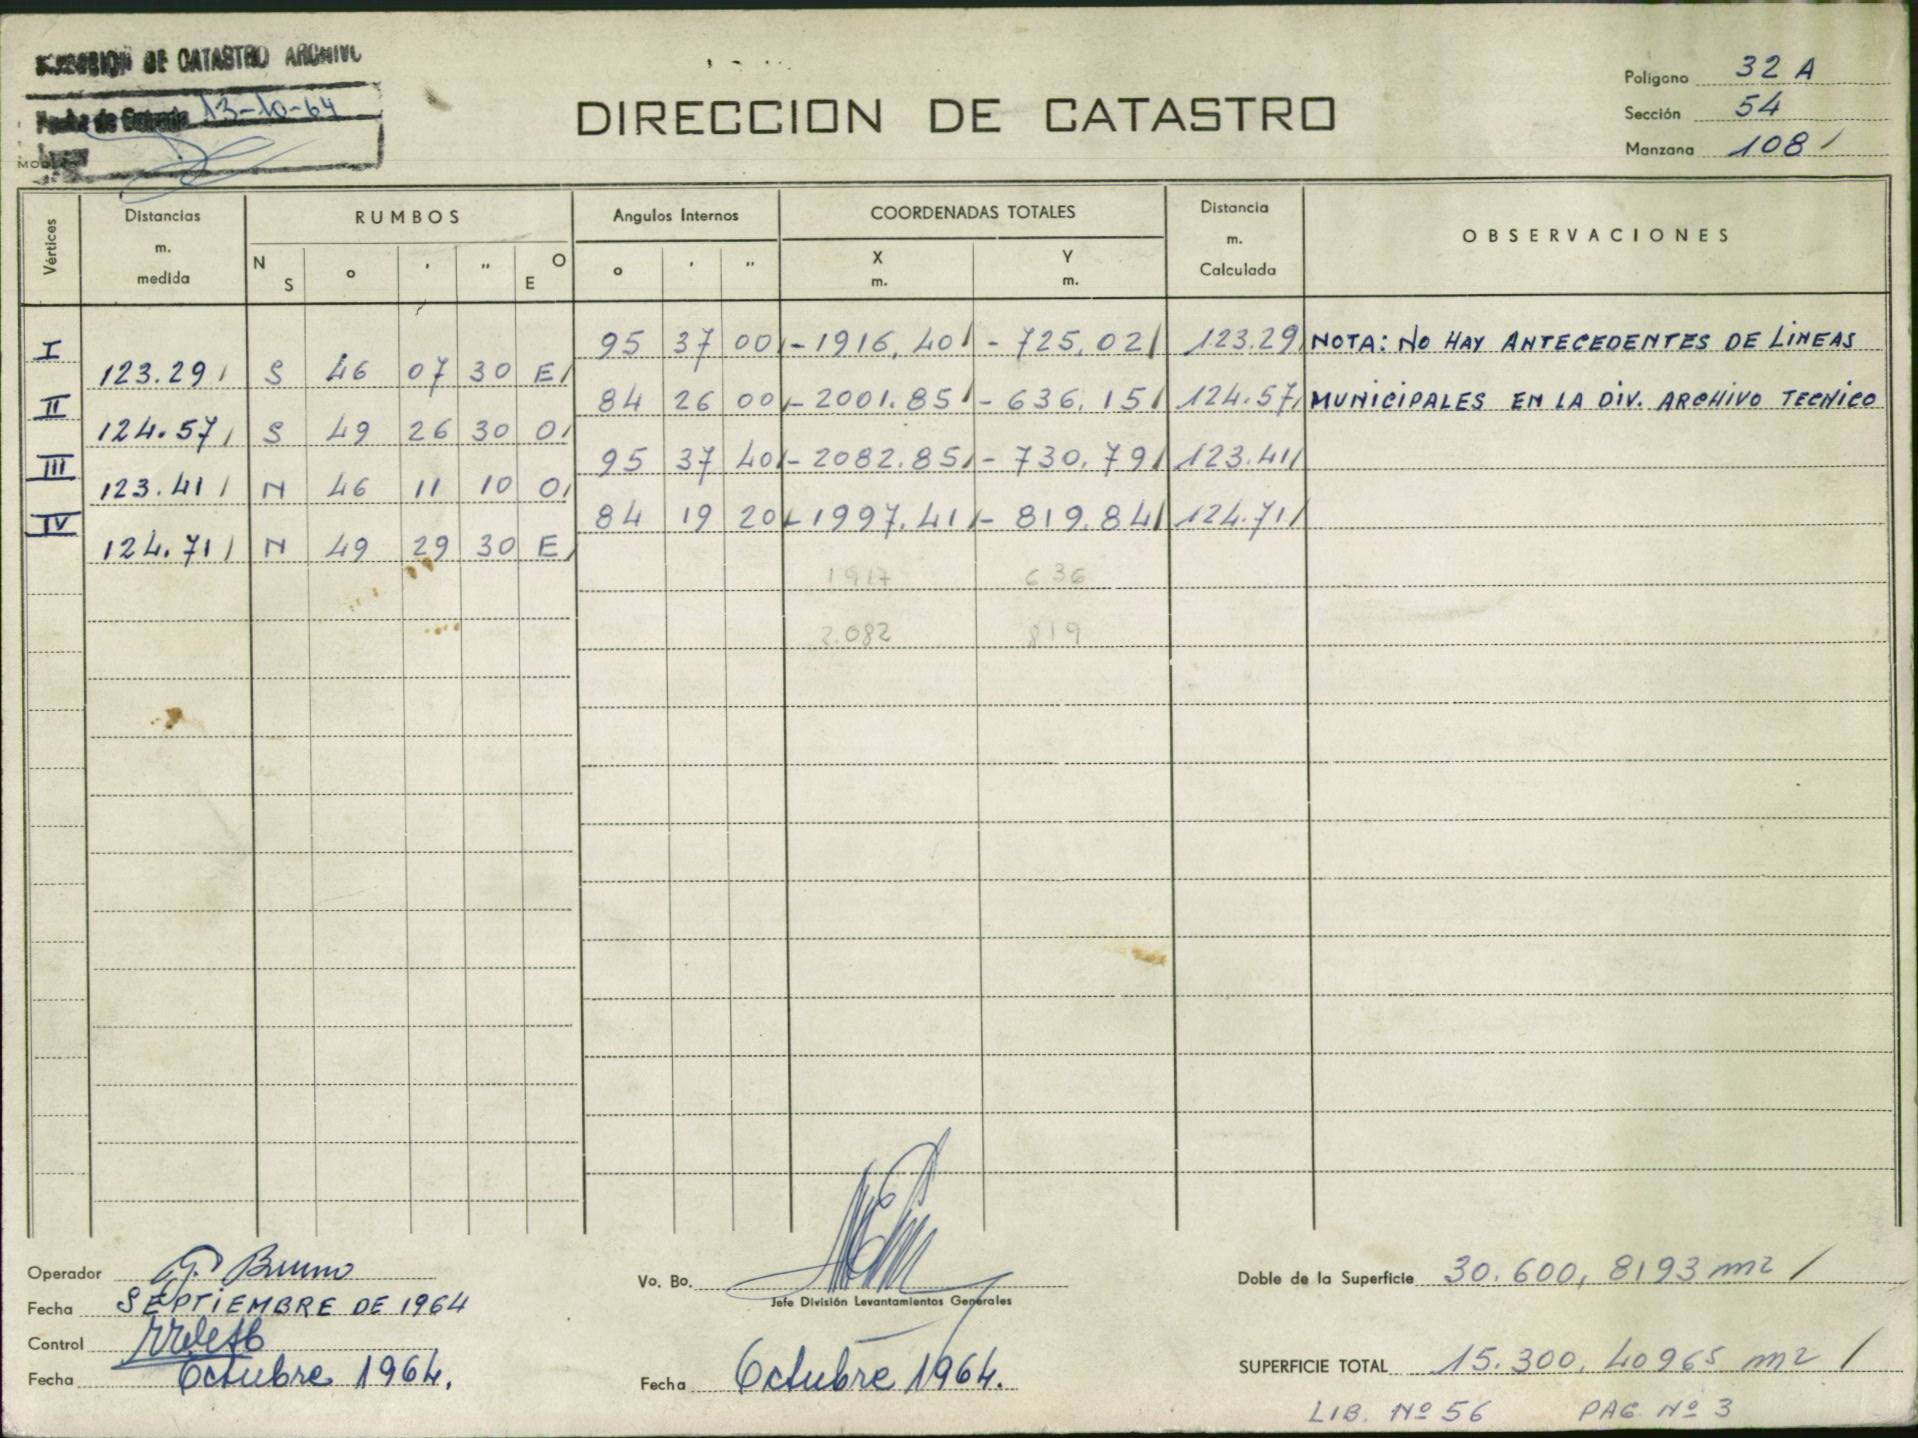 DE CATASTRO ARCHIVO
Fecha de Entrada 13-10-64
DIRECCION DE CATASTRO
Polígono 32 A
Sección 54
Manzana 108
Vértices
Distancias m. medida
RUMBOS
N S ° ' " O E
Angulos Internos
° ' "
COORDENADAS TOTALES
X m. Y m.
Distancia m. Calculada
OBSERVACIONES
I 95 37 00 -1916,40 -725,02 123.29 NOTA: NO HAY ANTECEDENTES DE LINEAS
123.29 S 46 07 30 E
II 84 26 00 -2001.85 -636,15 124.57 MUNICIPALES EN LA DIV. ARCHIVO TECNICO
124.57 S 49 26 30 O
III 95 37 40 -2082.85 -730,79 123.41
123.41 N 46 11 10 O
IV 84 19 20 -1997,41 -819.84 124.71
124.71 N 49 29 30 E
1917 636
2.082 819
Operador G. Bruno
Fecha SEPTIEMBRE DE 1964
Control
Fecha Octubre 1964.
Vo. Bo.
Jefe División Levantamientos Generales
Fecha Octubre 1964.
Doble de la Superficie 30.600,8193 m2
SUPERFICIE TOTAL 15.300,40965 m2
LIB. Nº 56 PAG. Nº 3